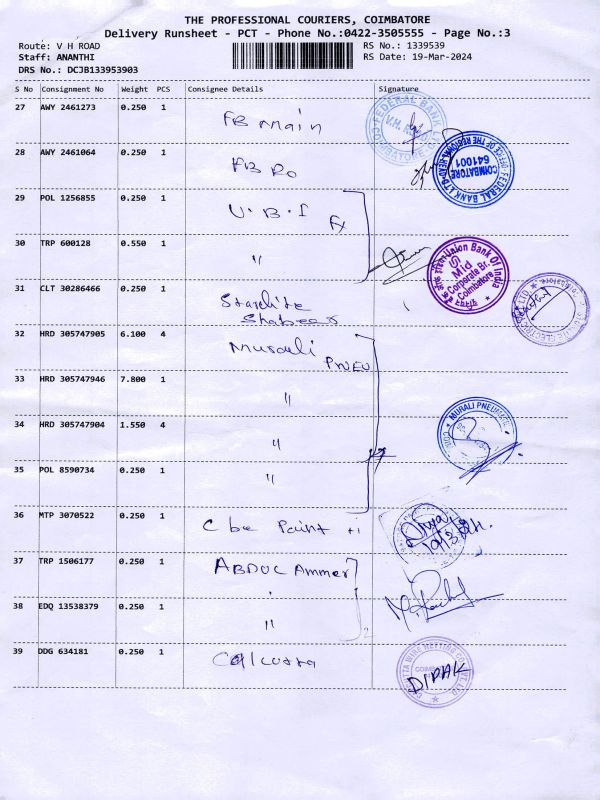 THE PROFESSIONAL COURIERS, COIMBATORE
Delivery Runsheet - PCT - Phone No.:0422-3505555 - Page No.:3
Route: V H ROAD
RS No.: 1339539
Staff: ANANTHI
RS Date: 19-Mar-2024
DRS No.: DCJB133953903
S No Consignment No Weight PCS Consignee Details Signature
27 AWY 2461273 0.250 1 FB Main
FEDERAL BANK
V.H. ROAD
28 AWY 2461064 0.250 1 FB RO
COIMBATORE
641001
29 POL 1256855 0.250 1 U.B.I
30 TRP 600128 0.550 1 "
Union Bank Of India
Mid
Corporate Br.
Coimbatore
31 CLT 30286466 0.250 1
32 HRD 305747905 6.100 4 Murali
PNEU
33 HRD 305747946 7.800 1 "
34 HRD 305747904 1.550 4 "
MURALI PNEUMATIC
35 POL 8590734 0.250 1 "
36 MTP 3070522 0.250 1 Cbe Paint
37 TRP 1506177 0.250 1 ABDUL Ammer
38 EDQ 13538379 0.250 1 "
2
39 DDG 634181 0.250 1 Calcutta
DIPAK